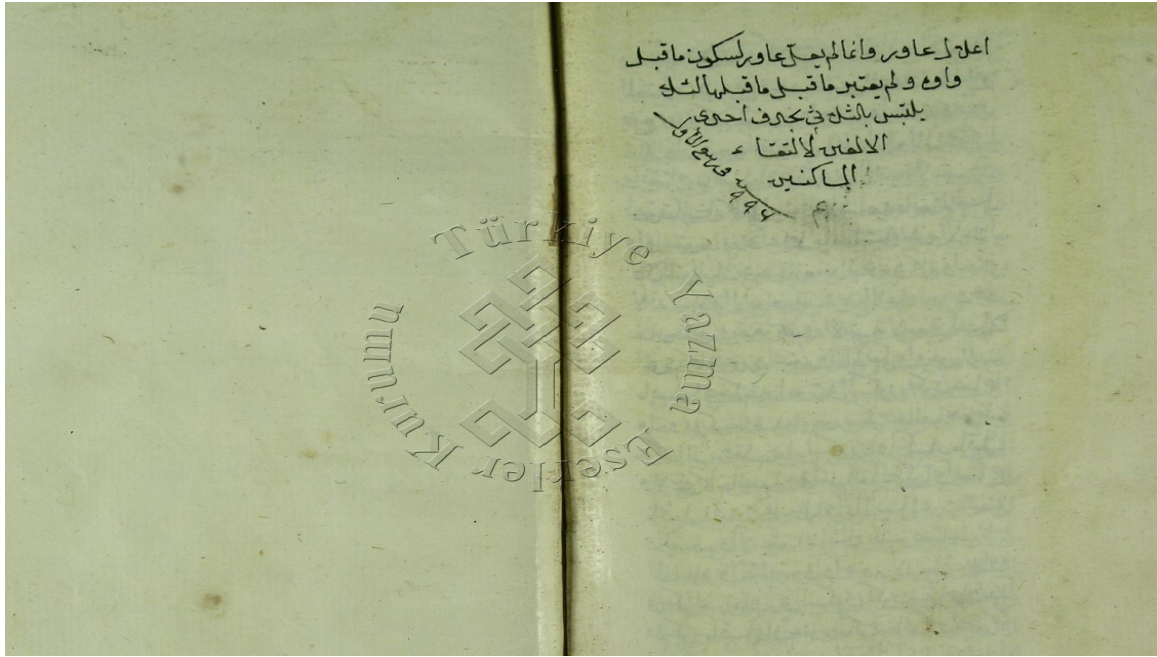 اعلال عاور وانما لم يعل عاور لسكون ما قبل
واوه ولم يعتبر ما قبل ما قبلها لئلا
يلتبس بالثلاثي بحذف احدى
الالفين لالتقاء
الساكنين
م
في ربيع الأول
سنة ٩٩٤
Türkiye Yazma Eserler Kurumu